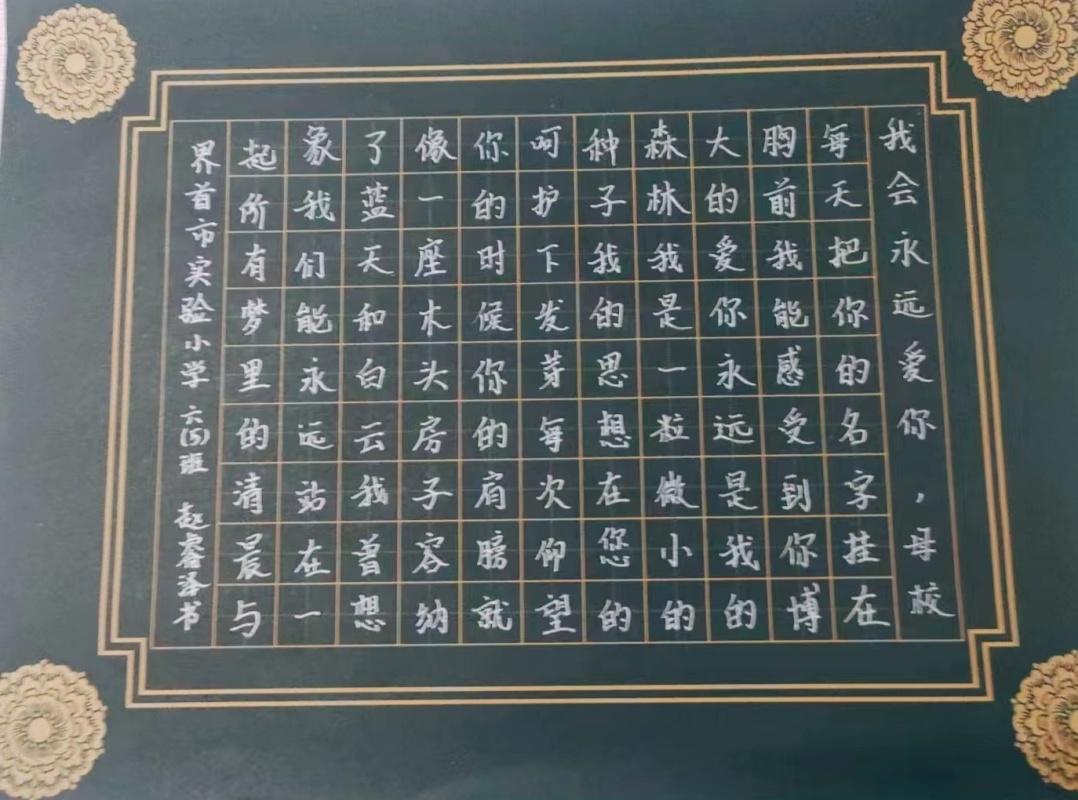 我会永远爱你，母校
每天把你的名字挂在
胸前我能感受到你博
大的爱你永远是我的
森林我是一粒微小的
种子我的思想在您的
呵护下发芽每次仰望
你的时候你的肩膀就
像一座木头房子容纳
了蓝天和白云我曾想
象我们能永远站在一
起所有梦里的清晨与
界首市实验小学 六(5)班 赵睿泽书